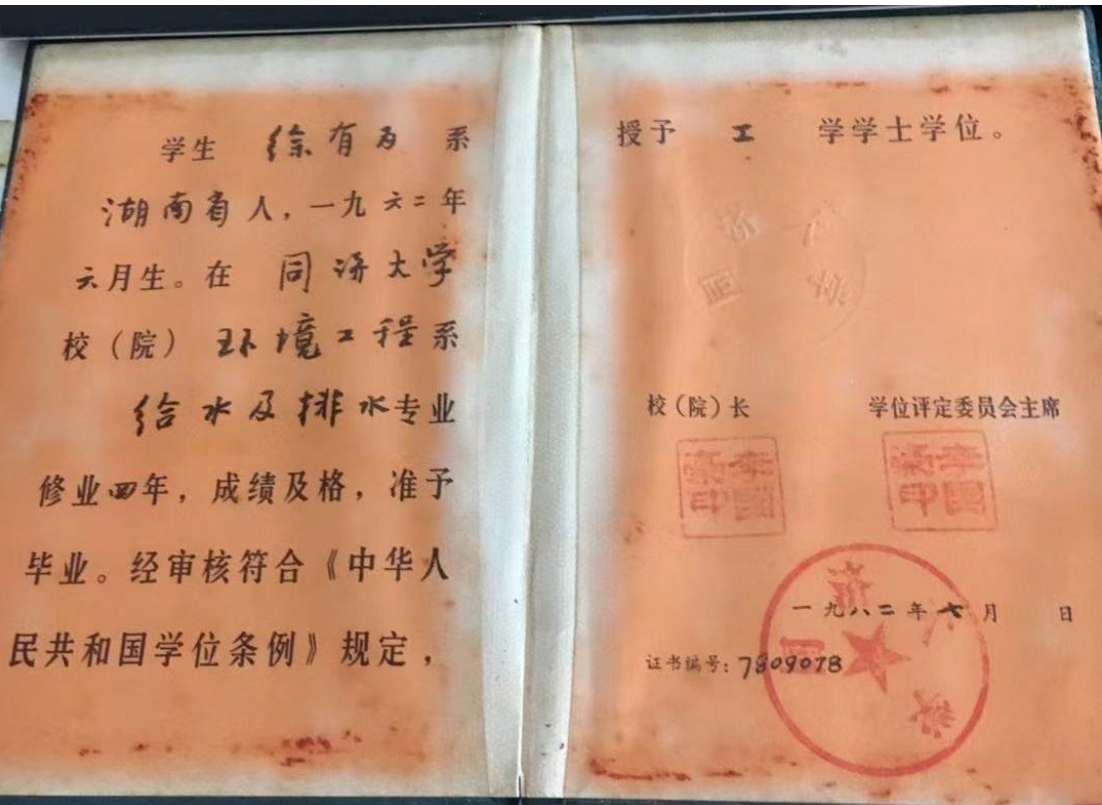 学生 徐有为 系
湖南省人，一九六二年
六月生。在 同济大学
校（院） 环境工程系
给水及排水专业
修业四年，成绩及格，准予
毕业。经审核符合《中华人
民共和国学位条例》规定，
授予 工 学学士学位。
同济大学
校（院）长 学位评定委员会主席
一九八二年七月 日
证书编号：7809078